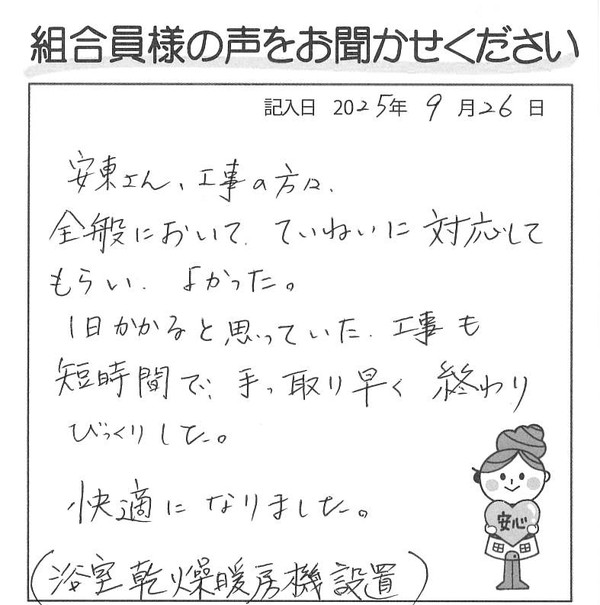 組合員様の声をお聞かせください
記入日 2025年 9月26日
安東さん、工事の方に、
全般において、ていねいに対応して
もらい、よかった。
1日かかると思っていた、工事も
短時間で、手っ取り早く終わり
びっくりした。
快適になりました。
(浴室乾燥暖房機設置)
安心